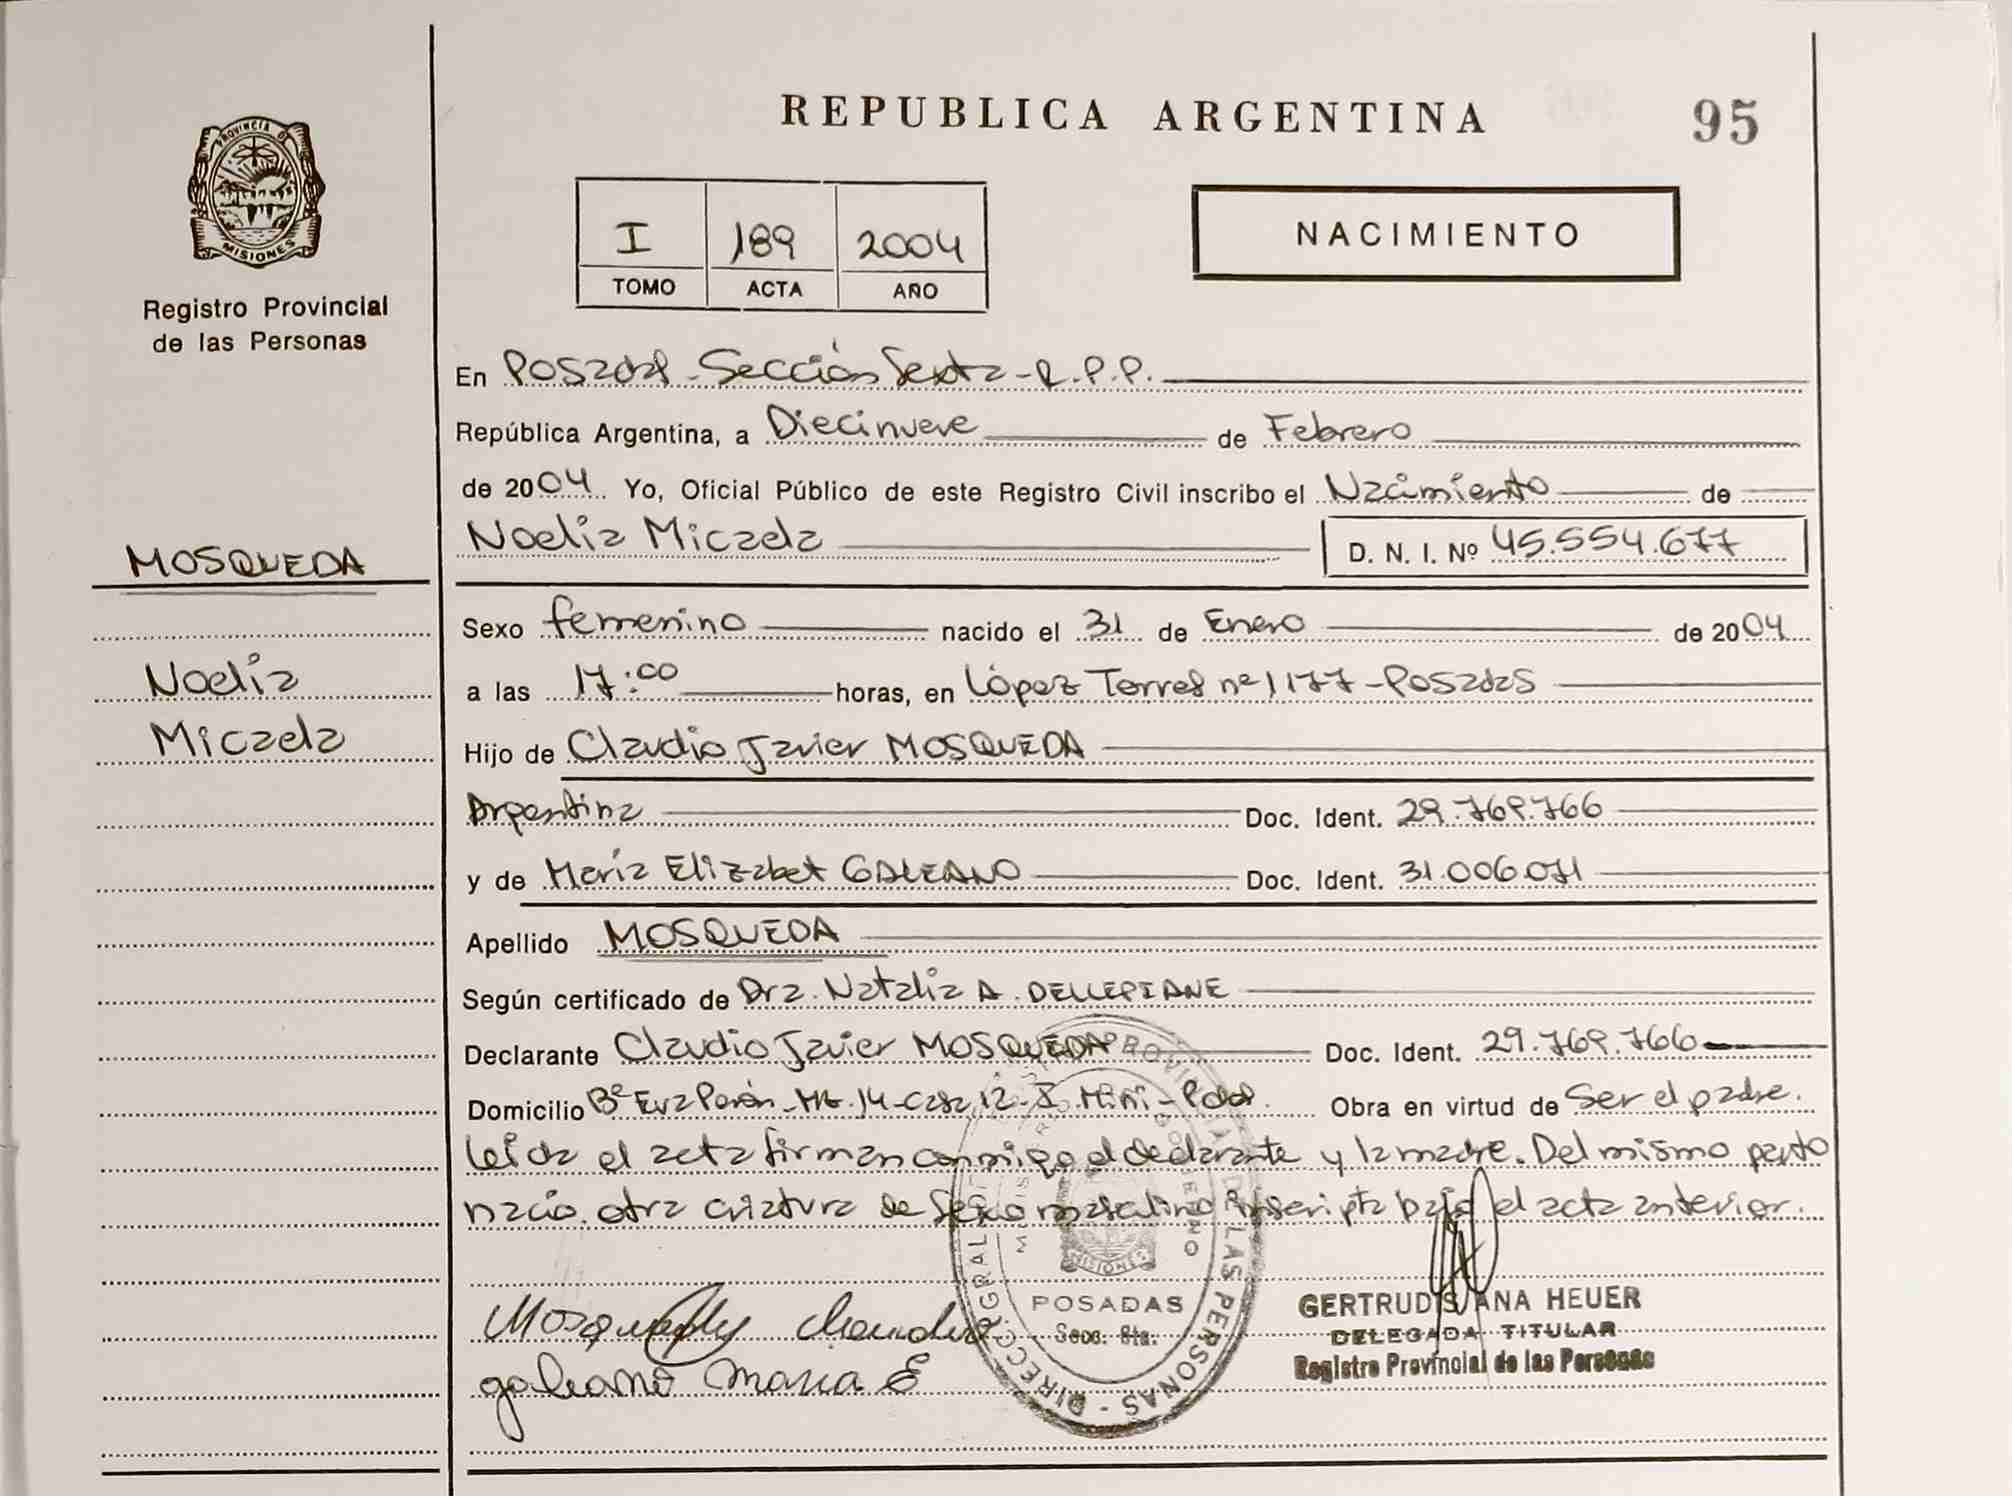 REPUBLICA ARGENTINA
95
PROVINCIA DE
MISIONES
Registro Provincial
de las Personas
I 189 2004
TOMO ACTA AÑO
NACIMIENTO
En Posadas - Sección Sexta - R.P.P.
República Argentina, a Diecinueve de Febrero
de 2004. Yo, Oficial Público de este Registro Civil inscribo el Nacimiento de
Noelia Micaela D. N. I. Nº 45.554.677
MOSQUEDA
Noelia
Micaela
Sexo femenino nacido el 31 de Enero de 2004
a las 17:00 horas, en López Torres nº 1177 - Posadas
Hijo de Claudio Javier MOSQUEDA
Argentina Doc. Ident. 29.769.766
y de María Elizabet GALEANO Doc. Ident. 31.006.071
Apellido MOSQUEDA
Según certificado de Dra. Natalia A. DELLEPIANE
Declarante Claudio Javier MOSQUEDA Doc. Ident. 29.769.766
Domicilio Bº Eva Perón - Mz. 14 - Casa 12 - I. Miní - Pdas. Obra en virtud de Ser el padre.
Leída el acta firman conmigo el declarante y la madre. Del mismo parto
nació otra criatura de Sexo masculino inscripta bajo el acta anterior.
Mosqueda Claudio
galeano Maria E
POSADAS
Secc. 6ta.
MISIONES
GERTRUDIS ANA HEUER
DELEGADA TITULAR
Registro Provincial de las Personas